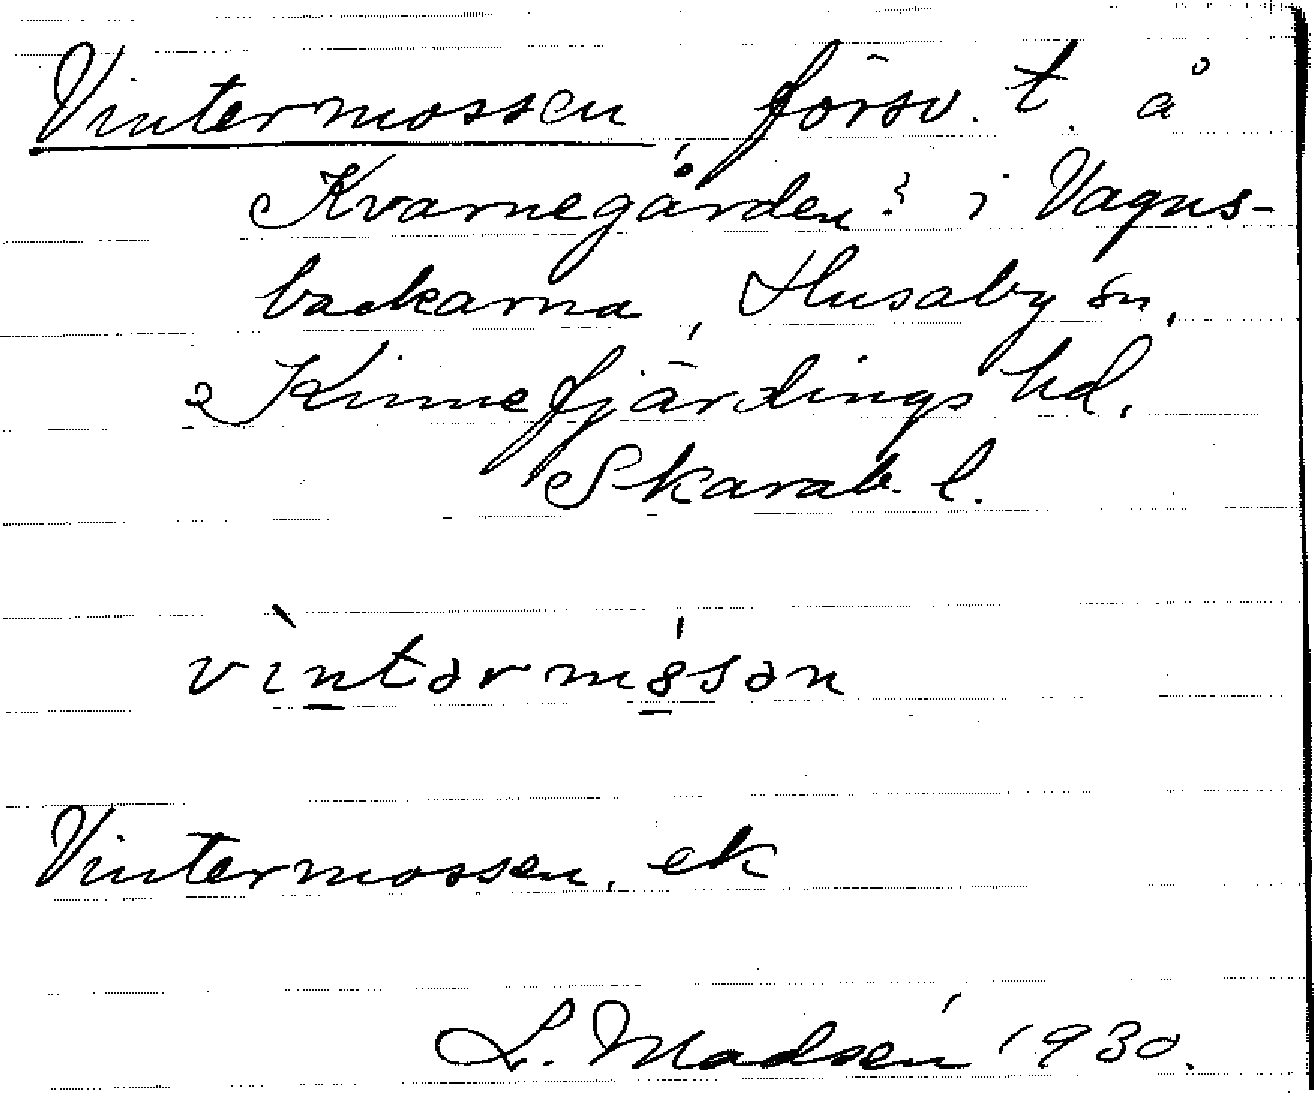 Vintermossen, försv. t. å
Kvarnegården? i Vagns-
backarna, Husaby sn,
Kinnefjärdings hd.
Skarab. l.
vìntərmósən
Vintermossen, ek
L. Madsén 1930.